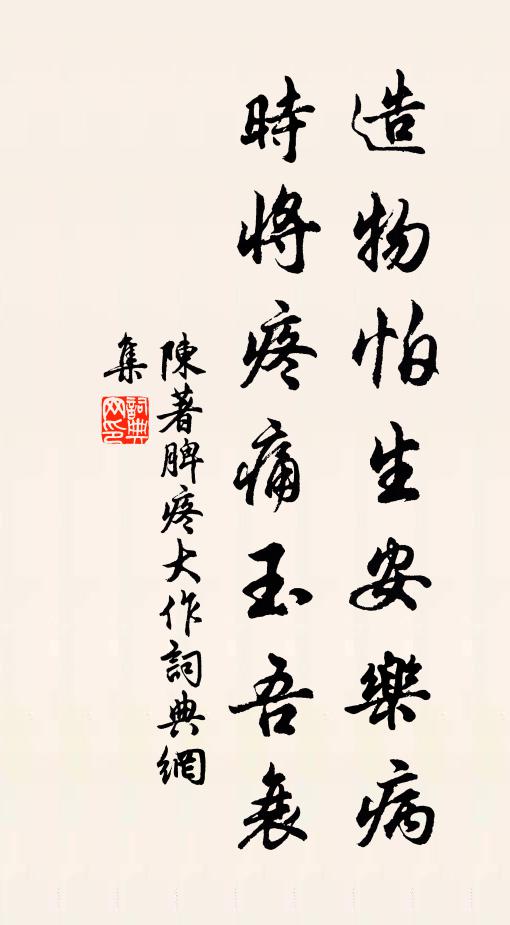 造物怕生安樂病
時將疼痛玉吾衰
陳著脾疼大作詞典網
集
詞典网印